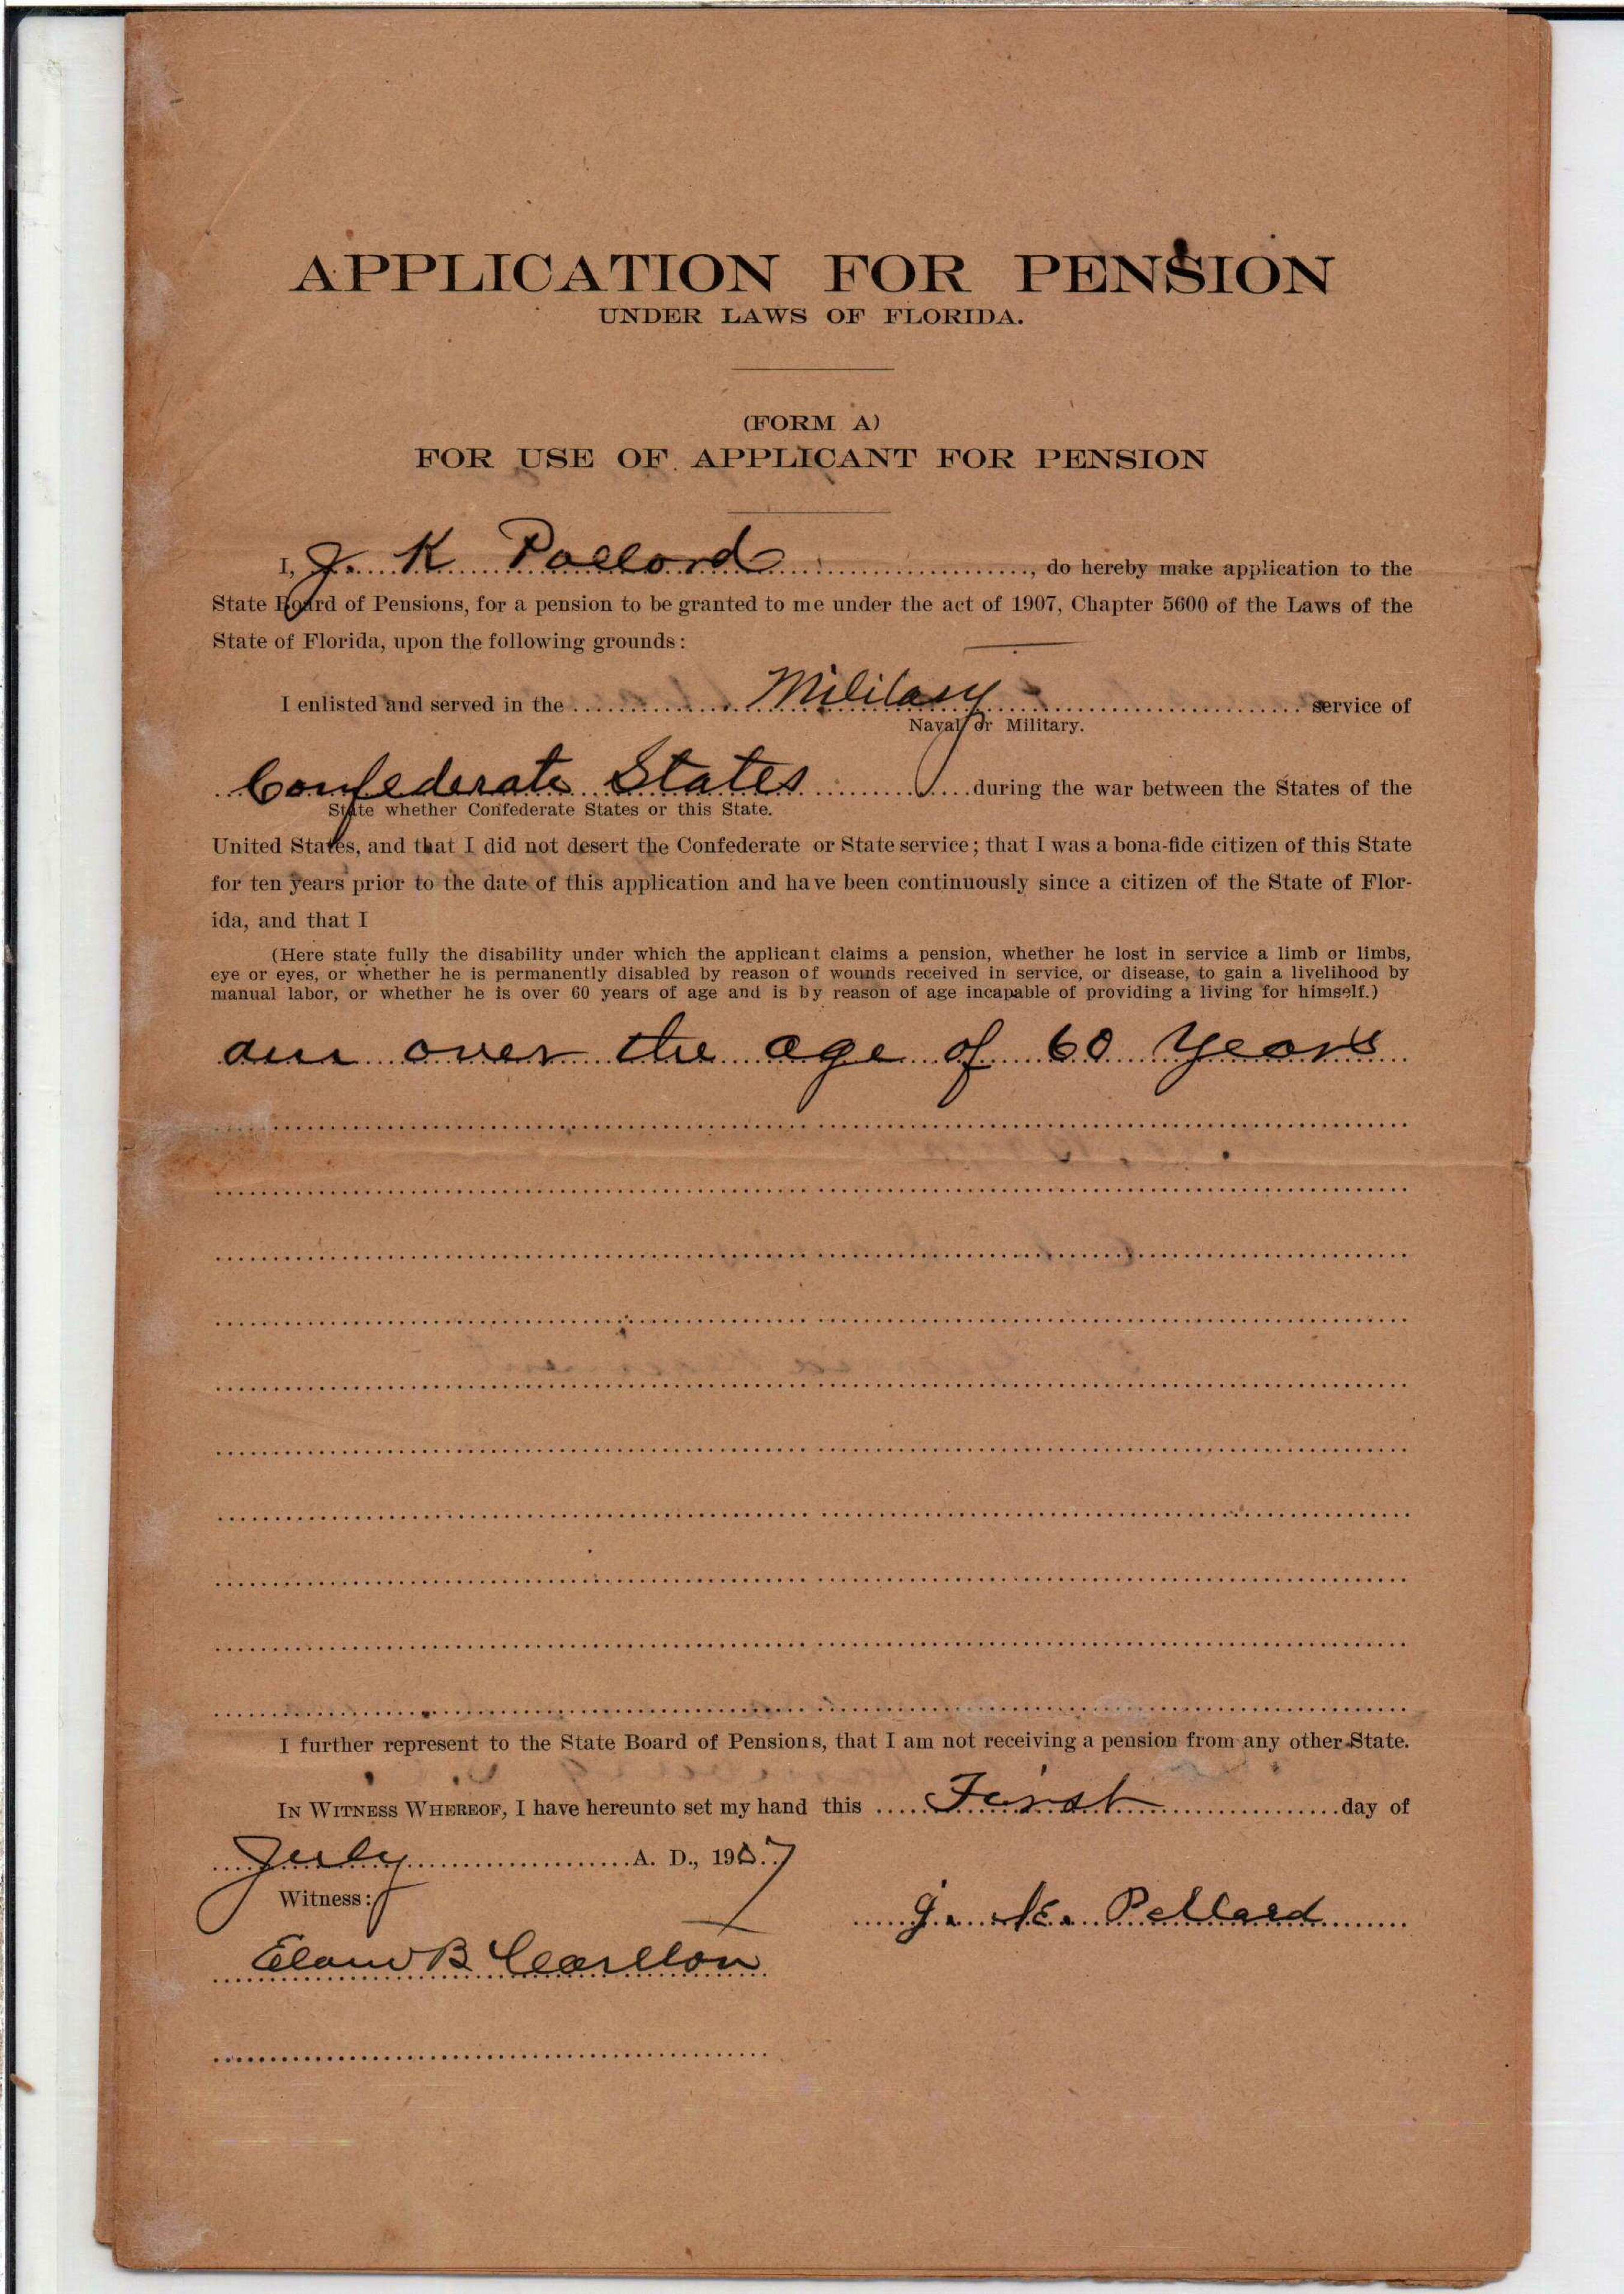 APPLICATION FOR PENSION
UNDER LAWS OF FLORIDA.
(FORM A)
FOR USE OF APPLICANT FOR PENSION
I, J. K Pollord, do hereby make application to the
State Board of Pensions, for a pension to be granted to me under the act of 1907, Chapter 5600 of the Laws of the
State of Florida, upon the following grounds:
I enlisted and served in the Military service of
Naval or Military.
Confederate States during the war between the States of the
State whether Confederate States or this State.
United States, and that I did not desert the Confederate or State service; that I was a bona-fide citizen of this State
for ten years prior to the date of this application and have been continuously since a citizen of the State of Flor-
ida, and that I
(Here state fully the disability under which the applicant claims a pension, whether he lost in service a limb or limbs,
eye or eyes, or whether he is permanently disabled by reason of wounds received in service, or disease, to gain a livelihood by
manual labor, or whether he is over 60 years of age and is by reason of age incapable of providing a living for himself.)
am over the age of 60 Years
I further represent to the State Board of Pensions, that I am not receiving a pension from any other State.
IN WITNESS WHEREOF, I have hereunto set my hand this First day of
July A. D., 1907
Witness:
J. K. Pollard
B Carlton